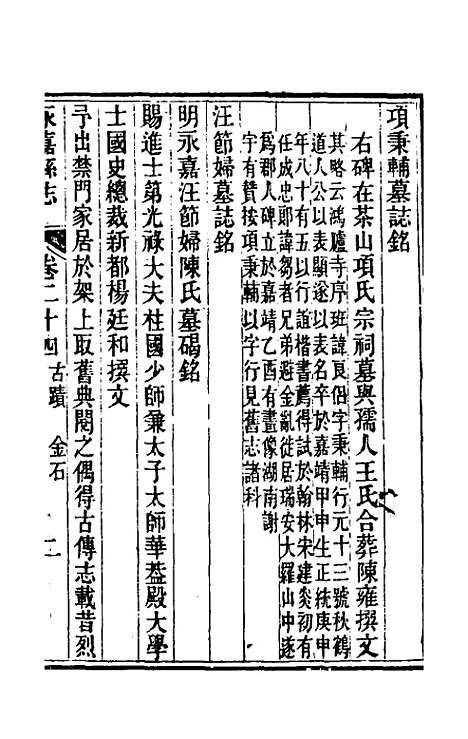 項秉輔墓誌銘
右碑在茶山項氏宗祠墓與孺人王氏合葬陳雍撰文
其略云鴻臚寺序班諱良侶字秉輔行元十三號秋鶴
道人公以表顯遂以表名卒於嘉靖甲申生正統庚申
年八十有五以行誼楷書薦得試於翰林宋建炎初有
任成忠郎諱芻者兄弟避金亂徙居瑞安大羅山中遂
爲郡人碑立於嘉靖乙酉有畫像湖南謝
字有贊按項秉輔以字行見舊志諸科
汪節婦墓誌銘
明永嘉汪節婦陳氏墓碣銘
賜進士第光祿大夫柱國少師兼太子太師華葢殿大學
士國史總裁新都楊廷和撰文
予出禁門家居於架上取舊典閱之偶得古傳志載昔烈
永嘉縣志 卷二十四 古蹟 金石